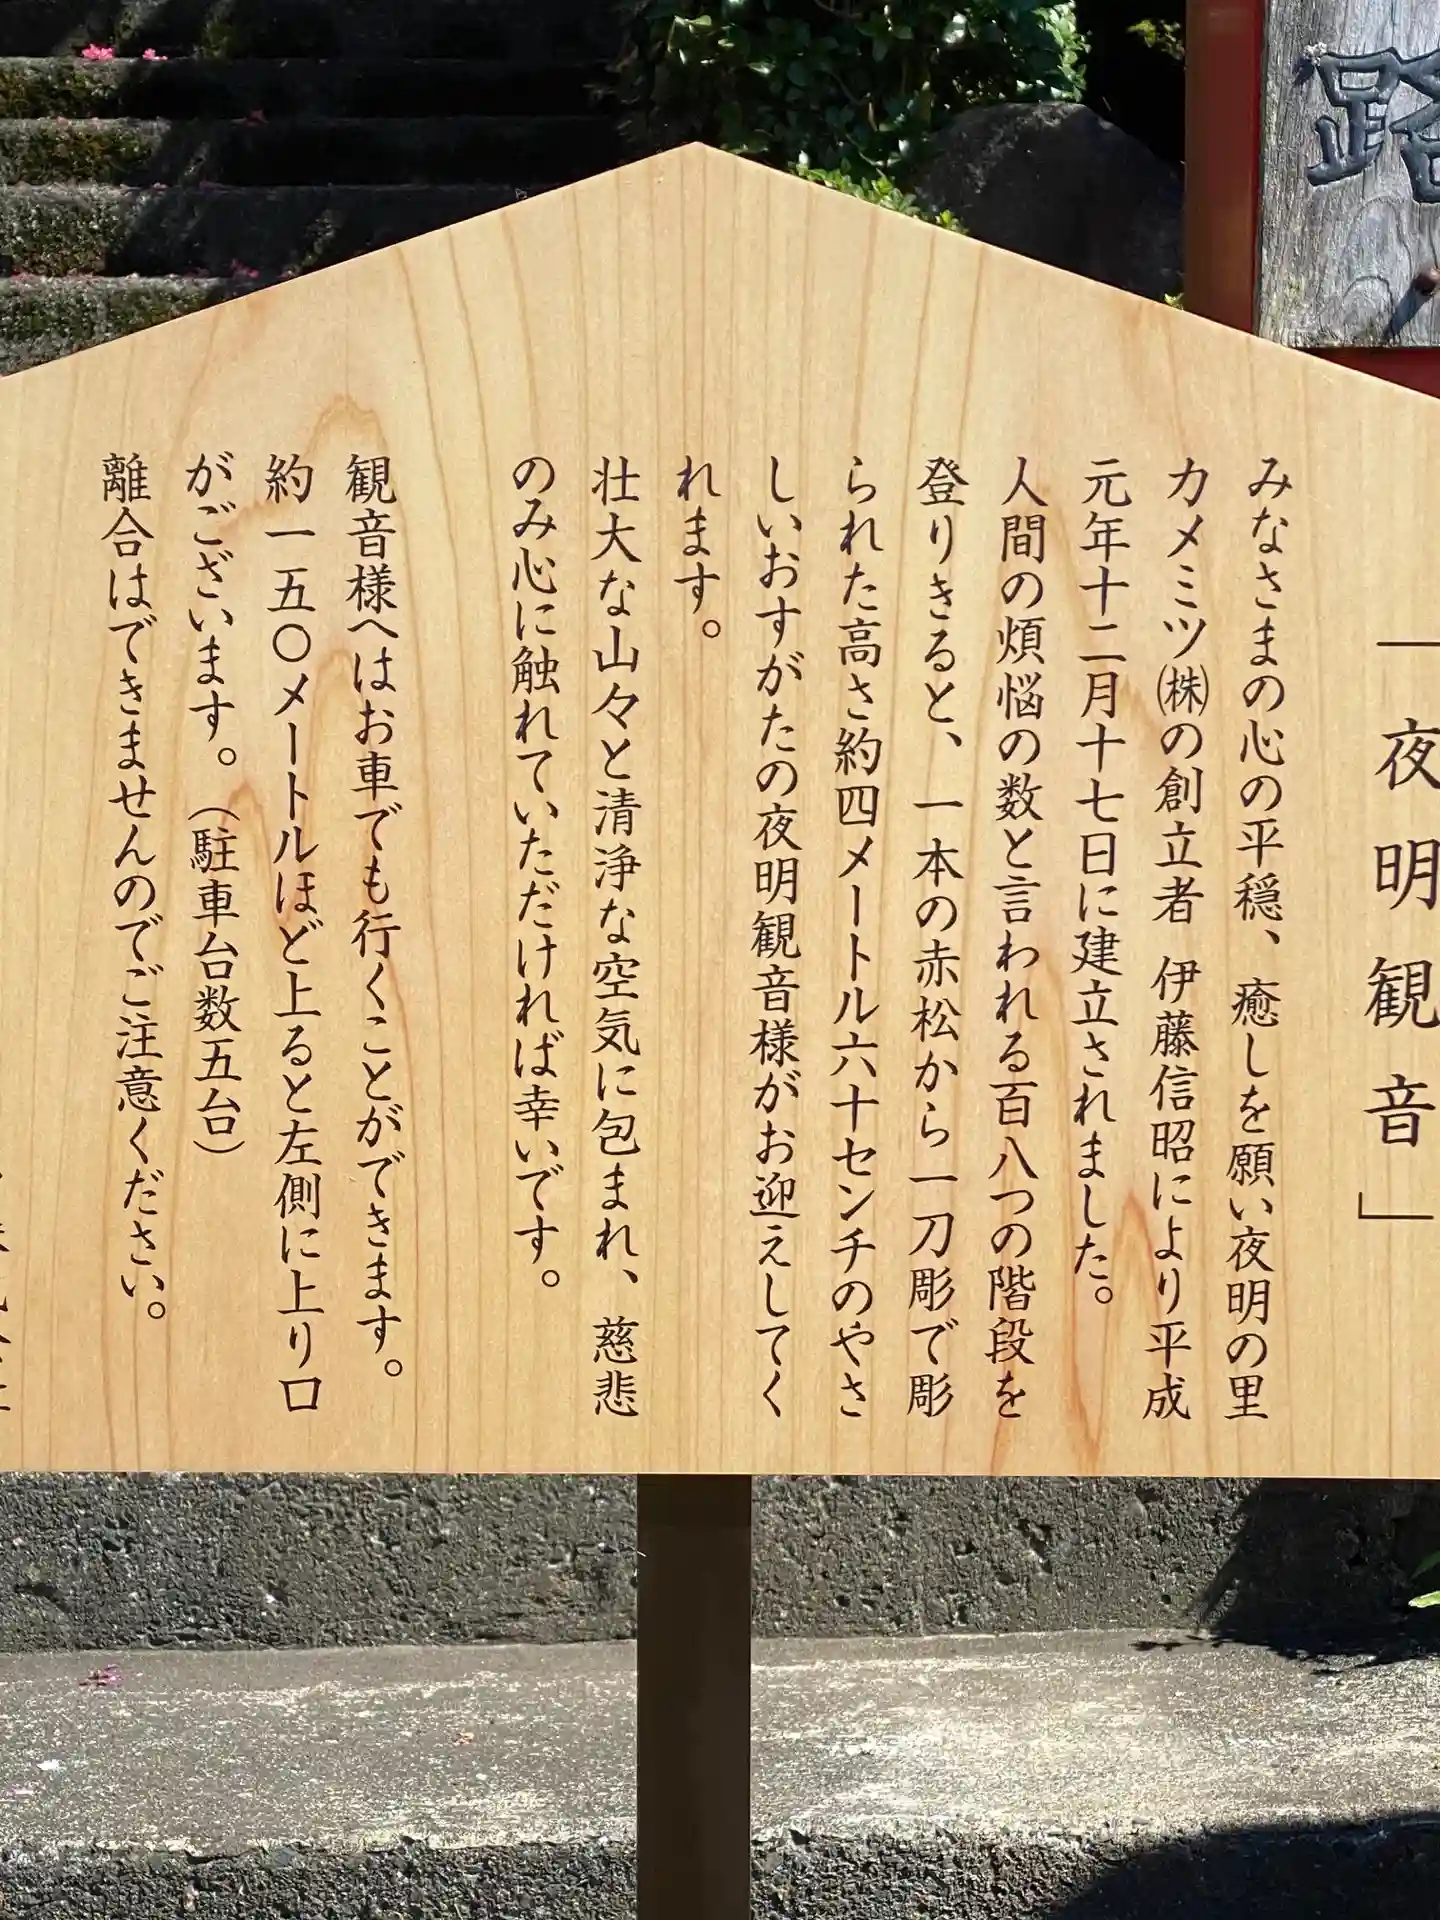 路
「夜明観音」
みなさまの心の平穏、癒しを願い夜明の里
カメミツ㈱の創立者 伊藤信昭により平成
元年十二月十七日に建立されました。
人間の煩悩の数と言われる百八つの階段を
登りきると、一本の赤松から一刀彫で彫
られた高さ約四メートル六十センチのやさ
しいおすがたの夜明観音様がお迎えしてく
れます。
壮大な山々と清浄な空気に包まれ、慈悲
のみ心に触れていただければ幸いです。
観音様へはお車でも行くことができます。
約一五〇メートルほど上ると左側に上り口
がございます。（駐車台数五台）
離合はできませんのでご注意ください。